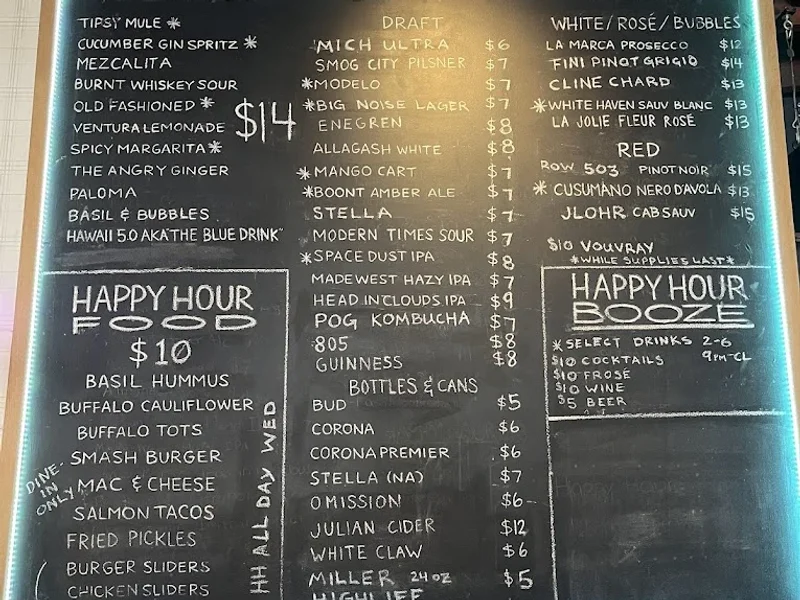 TIPSY MULE *
CUCUMBER GIN SPRITZ *
MEZCALITA
BURNT WHISKEY SOUR
OLD FASHIONED *
VENTURA LEMONADE
SPICY MARGARITA *
THE ANGRY GINGER
PALOMA
BASIL & BUBBLES
HAWAII 5.0 AKA "THE BLUE DRINK"
$14
HAPPY HOUR
FOOD
$10
BASIL HUMMUS
BUFFALO CAULIFLOWER
BUFFALO TOTS
SMASH BURGER
MAC & CHEESE
SALMON TACOS
FRIED PICKLES
BURGER SLIDERS
CHICKEN SLIDERS
DINE-
IN
ONLY
HH ALL DAY WED
DRAFT
MICH ULTRA $6
SMOG CITY PILSNER $7
*MODELO $7
*BIG NOISE LAGER $7
ENEGREN $8
ALLAGASH WHITE $8
*MANGO CART $7
*BOONT AMBER ALE $7
STELLA $7
MODERN TIMES SOUR $7
*SPACE DUST IPA $8
MADEWEST HAZY IPA $7
HEAD IN CLOUDS IPA $9
POG KOMBUCHA $7
805 $8
GUINNESS $8
BOTTLES & CANS
BUD $5
CORONA $6
CORONA PREMIER $6
STELLA (NA) $7
OMISSION $6
JULIAN CIDER $12
WHITE CLAW $6
MILLER 24 OZ $5
HIGHLIFE
WHITE/ROSÉ/BUBBLES
LA MARCA PROSECCO $12
FINI PINOT GRIGIO $14
CLINE CHARD $13
*WHITE HAVEN SAUV BLANC $13
LA JOLIE FLEUR ROSÉ $13
RED
ROW 503 PINOT NOIR $15
* CUSUMANO NERO D'AVOLA $13
JLOHR CAB SAUV $15
$10 VOUVRAY
*WHILE SUPPLIES LAST*
HAPPY HOUR
BOOZE
*SELECT DRINKS 2-6
9PM-CL
$10 COCKTAILS
$10 FROSE
$10 WINE
$5 BEER